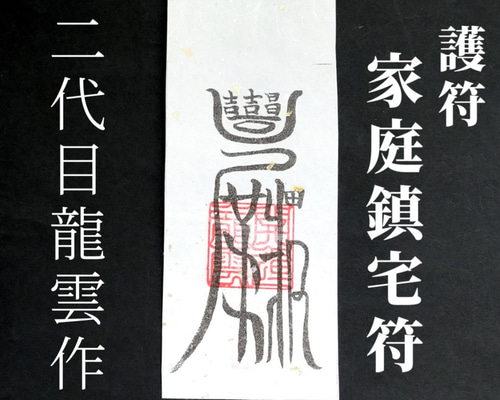 護符
家庭鎮宅符
二代目龍雲作